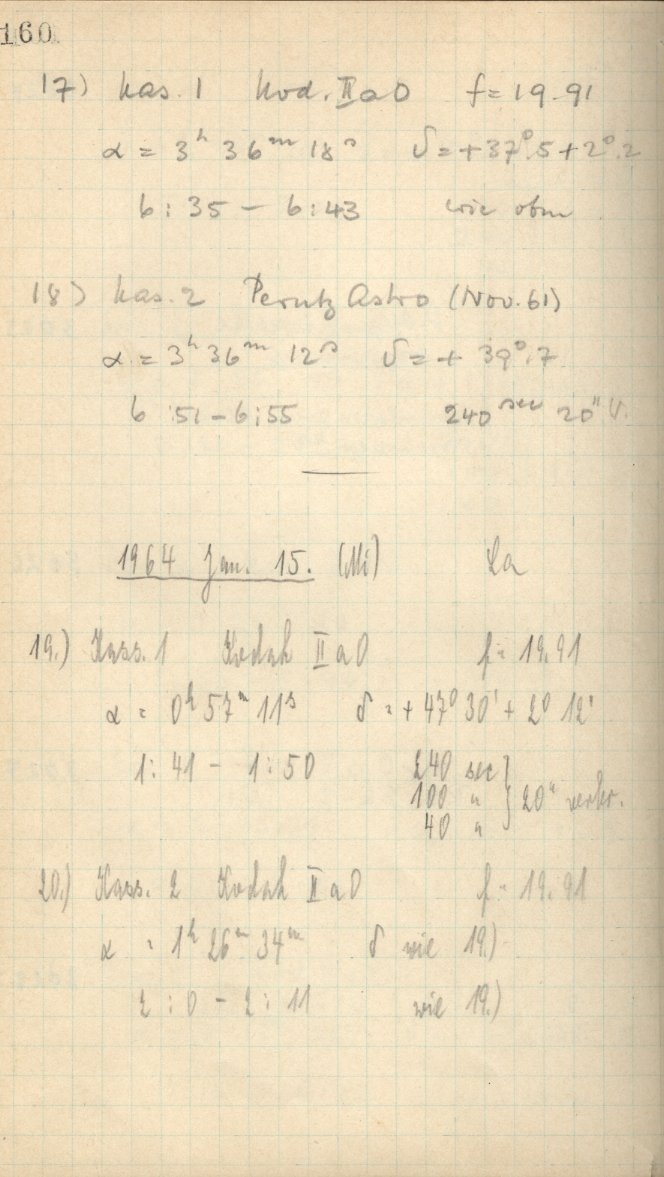 160
17) Kas. 1 Kod. II a O f = 19.91
α = 3h 36m 18s δ = +37°.5 + 2°.2
6:35 – 6:43 wie oben
18) Kas. 2 Perutz Astro (Nov. 61)
α = 3h 36m 12s δ = + 39°.7
6:51 – 6:55 240 sec 20" V.
1964 Jan. 15. (Mi) La
19.) Kass. 1 Kodak II a O f = 19.91
α = 0h 57m 11s δ = +47° 30' + 2° 12'
1:41 – 1:50 240 sec
100 " } 20" verkr.
40 "
20.) Kass. 2 Kodak II a O f = 19.91
α = 1h 26m 34m δ wie 19.)
2:0 – 2:11 wie 19.)